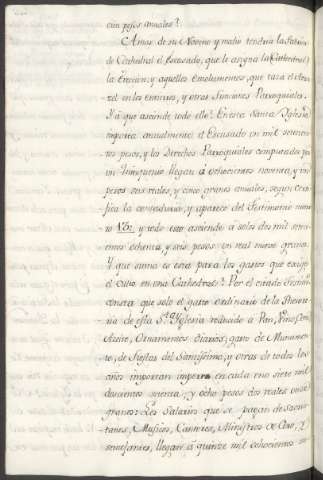 cien pesos annuales?
Amas de su Noveno y medio tendria la Fabrica
de Cathedral el Escusado, que le asigna la Cathedral
la Ereccion; y aquellos emolumentos, que tasa el Aran-
cel en los entierros, y otras funciones Parroquiales.
Y a que asciende todo ello? En esta Santa Yglesia
importa annualmente el Escusado en mil
pesos, y los Derechos Parroquiales computados por
un Quinquenio llegan à ochocientos noventa, y
pesos seis reales, y cinco granos annuales, segun Certi-
fica la contaduria, y aparece del Testimonio nume-
ro y todo esto asciende à solos dos mil
cientos ochenta, y seis pesos un real nueve granos.
Y que suma es esta para los gastos que exige
el Culto en una Cathedral? Por el citado
consta que solo el gasto ordinario de la Sacris-
tia de esta Sta. Yglesia reducido à Pan, Vino, Cera,
Aceite, Ornamentos diarios, gasto de Monumen-
to, de fiestas del Santissimo, y otras de todos los
años importan en cada uno siete mil
doscientos y ocho pesos dos reales
granos: Los Salarios que se pagan de Sacris-
tanes, Musicos, Cantores, Ministros de Coro, y
semejantes, llegan à quinze mil ochocientos